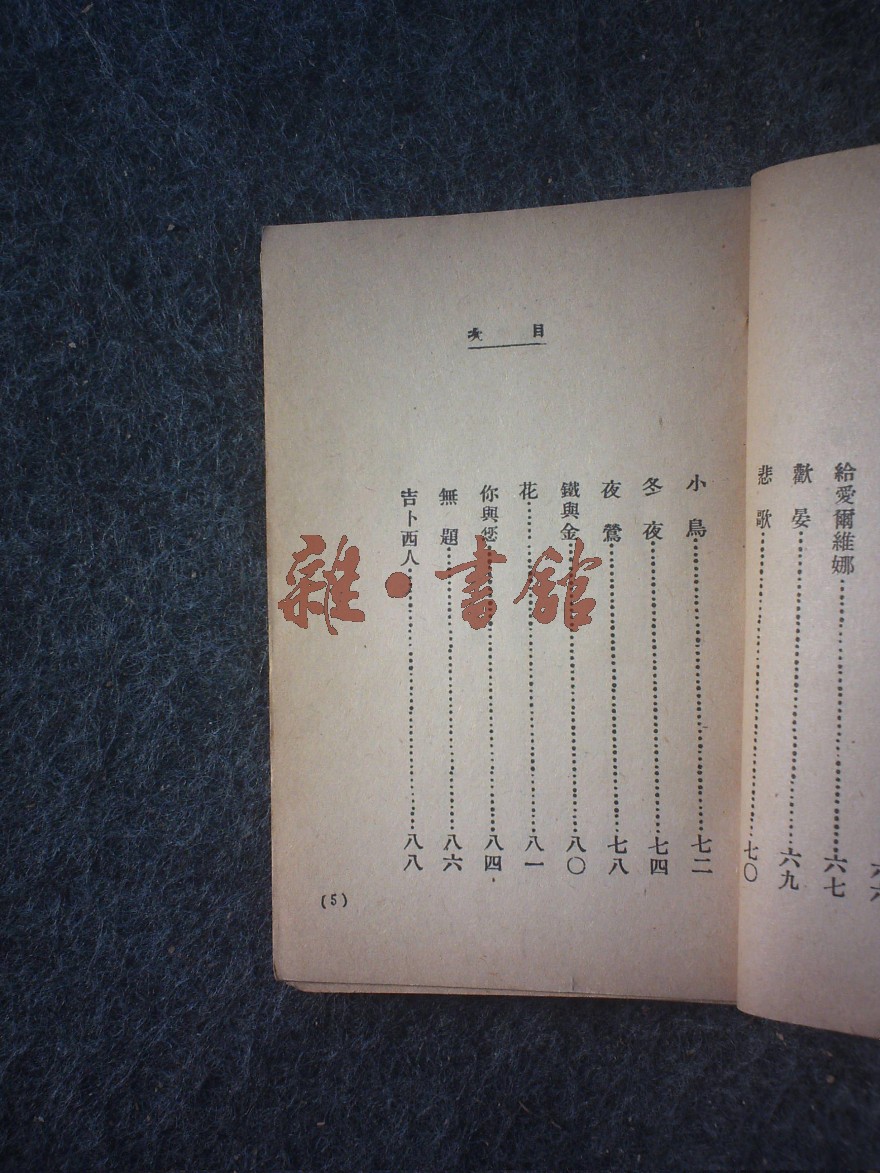 六六
給愛爾維娜……六七
歡晏……六九
悲歌……七〇
目次
小鳥……七二
冬夜……七四
夜鶯……七八
鐵與金……八〇
花……八一
你與您……八四
無題……八六
吉卜西人……八八
(5)
雜·書館